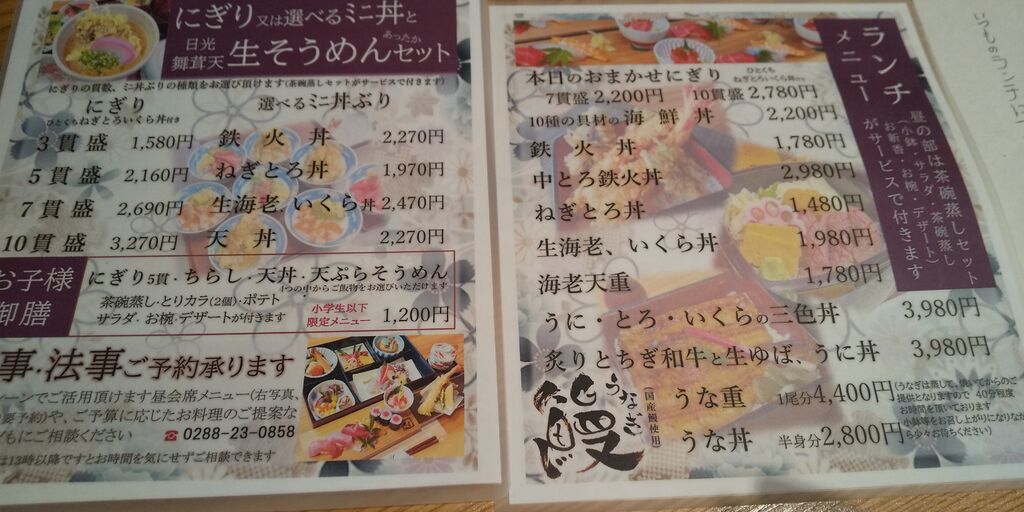 にぎり又は選べるミニ丼と
日光
舞茸天
あったか
生そうめんセット
にぎりの貫数、ミニ丼ぶりの種類をお選び頂けます(茶碗蒸しセットがサービスで付きます)
にぎり
ひとくちねぎとろいくら丼付き
選べるミニ丼ぶり
3貫盛 1,580円 鉄火丼 2,270円
5貫盛 2,160円 ねぎとろ丼 1,970円
7貫盛 2,690円 生海老、いくら丼 2,470円
10貫盛 3,270円 天丼 2,270円
お子様
御膳
にぎり5貫・ちらし・天丼・天ぷらそうめん
4つの中からご飯物をお選びいただけます
茶碗蒸し・とりカラ(2個)・ポテト
サラダ・お椀・デザートが付きます
小学生以下
限定メニュー
1,200円
事・法事ご予約承ります
ーンでご活用頂けます昼会席メニュー(右写真、
要予約)や、ご予算に応じたお料理のご提案な
どもにご相談ください ☎0288-23-0858
は13時以降ですとお時間を気にせずご相談できます
ランチ
メニュー
昼の部は茶碗蒸しセット
(小鉢・サラダ・茶碗蒸し
お新香・お椀・デザート)
がサービスで付きます
本日のおまかせにぎり
ひとくち
ねぎとろいくら丼付き
7貫盛 2,200円 10貫盛 2,780円
10種の具材の海鮮丼 2,200円
鉄火丼 1,780円
中とろ鉄火丼 2,980円
ねぎとろ丼 1,480円
生海老、いくら丼 1,980円
海老天重 1,780円
うに・とろ・いくらの三色丼 3,980円
炙りとちぎ和牛と生ゆば、うに丼 3,980円
うなぎ
鰻
(国産鰻使用)
うな重 1尾分4,400円
うな丼 半身分2,800円
(うなぎは蒸して、焼いてからのご
提供となりますので 40分程度
お時間を頂いております
小鉢等をお召し上がりになりなが
ら少々お待ちください)
いつものランチに